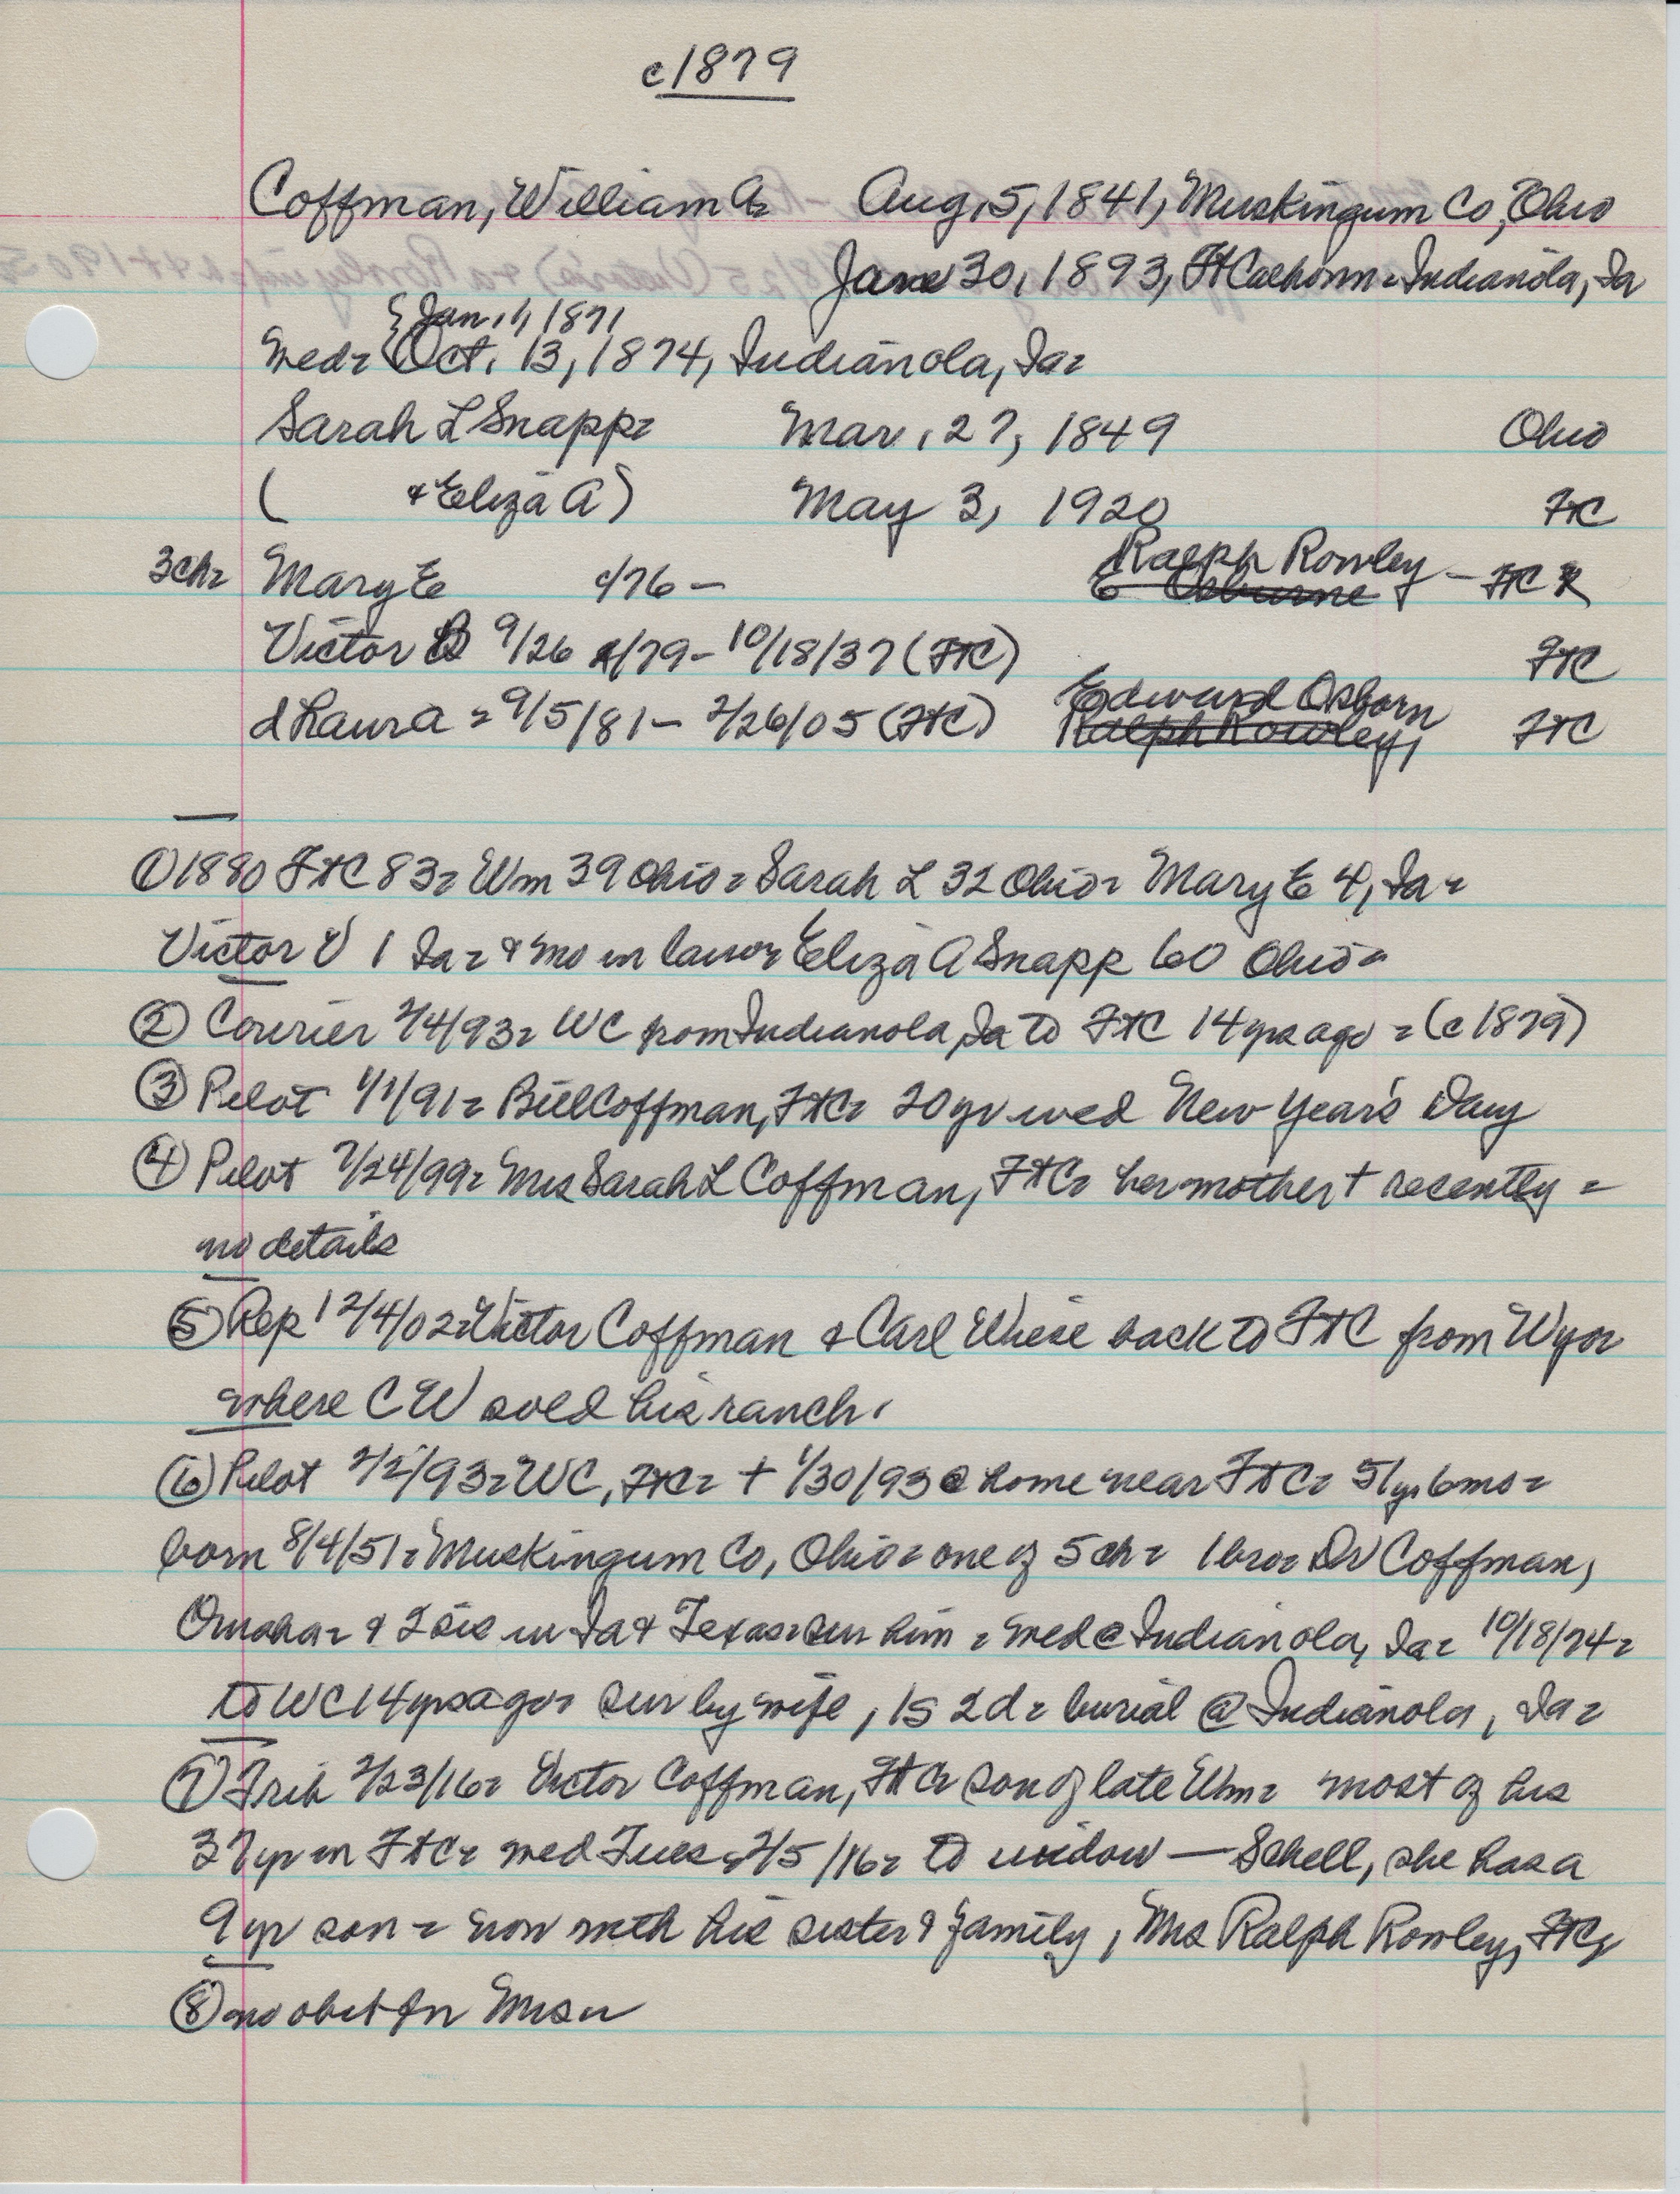 c1879
Coffman, William A= Aug, 5, 1841, Muskingum Co, Ohio
Jan 30, 1893, Ft Calhoun = Indianola, Ia
{Jan. 1, 1871
med= {Oct. 13, 1874, Indianola, Ia=
Sarah L Snapp= Mar. 27, 1849 Ohio
( & Eliza A) May 3, 1920 FtC
Ralph Rowley
3ch= Mary E c/76 – E Osburne – FtC
Victor 9/26 /79 – 10/18/37 (FtC) FtC
Edward Osborn
d Laura = 9/5/81 – 2/26/05 (FtC) Ralph Rowley, FtC
① 1880 FtC 83= Wm 39 Ohio= Sarah L 32 Ohio= Mary E 4, Ia=
Victor V 1 Ia= & mo in law= Eliza A Snapp 60 Ohio=
② Courier 2/4/93= WC from Indianola, Ia to FtC 14 yrs ago = (c 1879)
③ Pilot 1/1/91= Bill Coffman, FtC= 20 yr wed New Year's Day
④ Pilot 7/24/99= Mrs Sarah L Coffman, FtC= her mother + recently =
no details
⑤ Rep 12/4/02= Victor Coffman & Carl Weise back to FtC from Wyo=
where CW sold his ranch.
⑥ Pilot 2/2/93= WC, FtC= + 1/30/93 @ home near FtC= 51 yr 6 mo=
born 8/4/51= Muskingum Co, Ohio= one of 5 ch= 1 bro= Dr V Coffman,
Omaha= & 2 sis in Ia & Texas= sur him = med @ Indianola, Ia= 10/18/74=
to WC 14 yrs ago= sur by wife, 1s 2d= burial @ Indianola, Ia=
⑦ Trib 2/23/16= Victor Coffman, FtC= son of late Wm= most of his
37 yr in FtC= med Tues, 2/5/16= to widow — Schell, she has a
9 yr son = now with his sister & family, Mrs Ralph Rowley, FtC
⑧ no obit for Mrs=